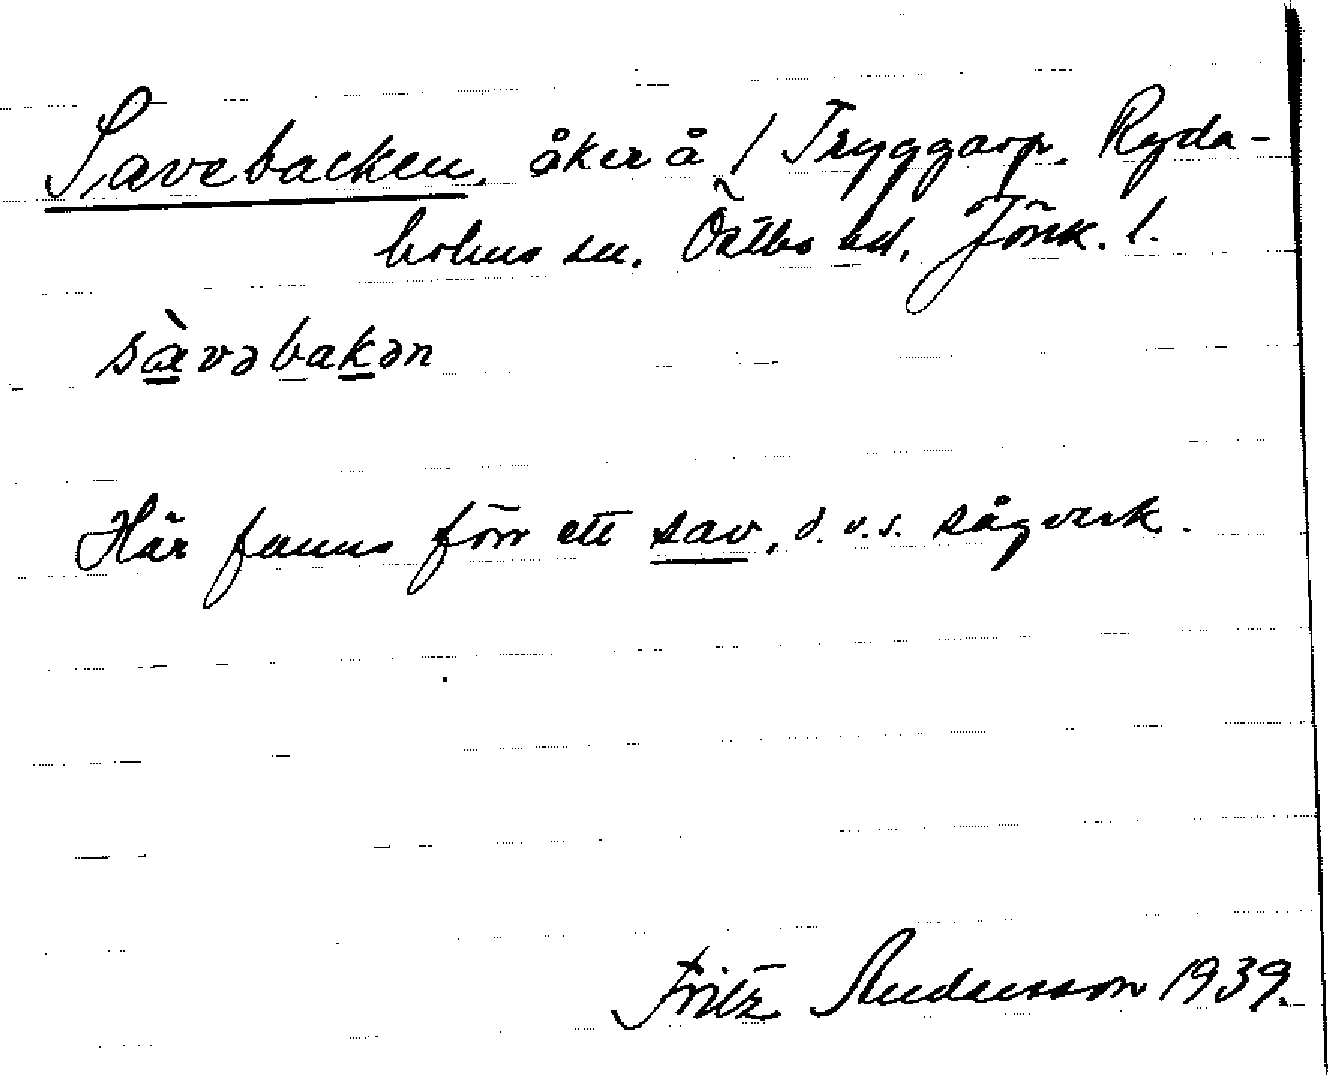 Savebacken, åker å / Tryggarp. Ryda-
holms sn. Östbo hd, Jönk. l.
sàvəbakən
Här fanns förr ett sav, d.v.s. sågverk.
Fritz Andersson 1939.